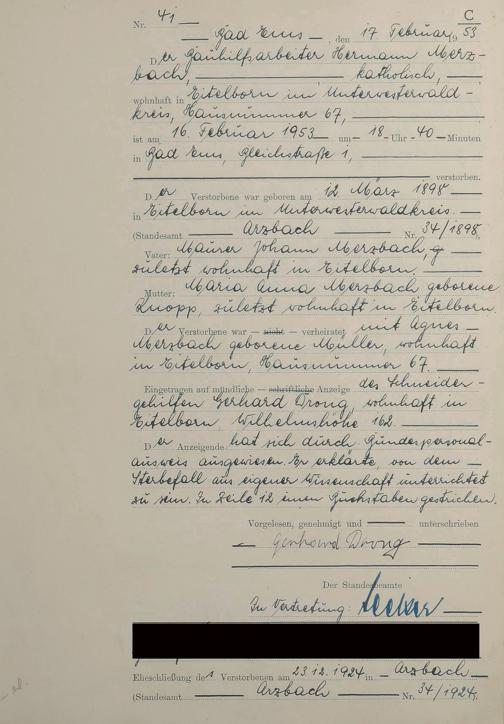 C
Nr. 41
Bad Ems, den 17 Februar 1953
Der Bauhilfsarbeiter Hermann Merz-
bach, katholisch,
wohnhaft in Eitelborn im Unterwesterwald-
kreis, Hausnummer 67,
ist am 16. Februar 1953 um 18 Uhr 40 Minuten
in Bad Ems, Bleichstraße 1,
verstorben.
Der Verstorbene war geboren am 12. März 1898
in Eitelborn im Unterwesterwaldkreis.
(Standesamt Arzbach Nr. 34/1898,
Vater: Maurer Johann Merzbach,
zuletzt wohnhaft in Eitelborn.
Mutter: Maria Anna Merzbach geborene
Knopp, zuletzt wohnhaft in Eitelborn.
Der Verstorbene war — nicht — verheiratet mit Agnes
Merzbach geborene Müller, wohnhaft
in Eitelborn, Hausnummer 67.
Eingetragen auf mündliche — schriftliche Anzeige des Schneider-
gehilfen Gerhard Drong, wohnhaft in
Eitelborn, Wilhelmshöhe 162.
Der Anzeigende hat sich durch Bundespersonal-
ausweis ausgewiesen. Er erklärte, von dem
Sterbefall aus eigener Wissenschaft unterrichtet
zu sein. In Zeile 12 einen Buchstaben gestrichen.
Vorgelesen, genehmigt und unterschrieben
Gerhard Drong
Der Standesbeamte
In Vertretung:
Eheschließung des Verstorbenen am 23.12.1924 in Arzbach
(Standesamt Arzbach Nr. 34/1924).